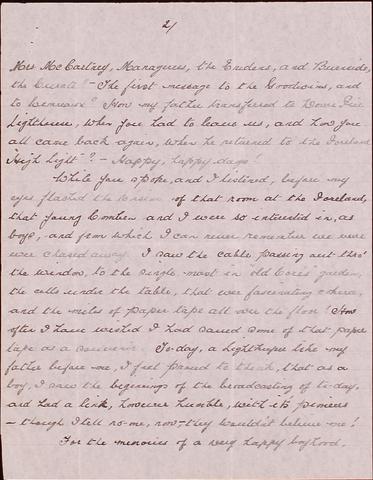 2/
Mrs McCartney, Managuees, the Endens, and Burnside,
the " - The first message to the Goodwins, and
to ? How my father transferred to Dover Pier
Lighthouse, when you had to leave us, and how you
all came back again, when he returned to the Foreland
High Light"? - Happy, happy days!
While you spoke, and I listened, before my
eyes flashed the vision of that room at the Foreland,
that young and I were so interested in, as
boys, and from which I can never remember we were
ever chased away. I saw the cable passing out thro'
the window, to the single mast in 'old garden,
the cells under the table, that were fascinating,
and the miles of paper tape all over the floor! How
often I have wished I had saved some of that paper
tape as a souvenir. To-day, a Lightkeeper like my
father before me, I feel proud to think, that as a
boy, I saw the beginnings of the broadcasting of to-day,
and had a link, however humble, with its pioneers
- though I tell no-one, now - they wouldn't believe me!
For the memories of a very happy boyhood.